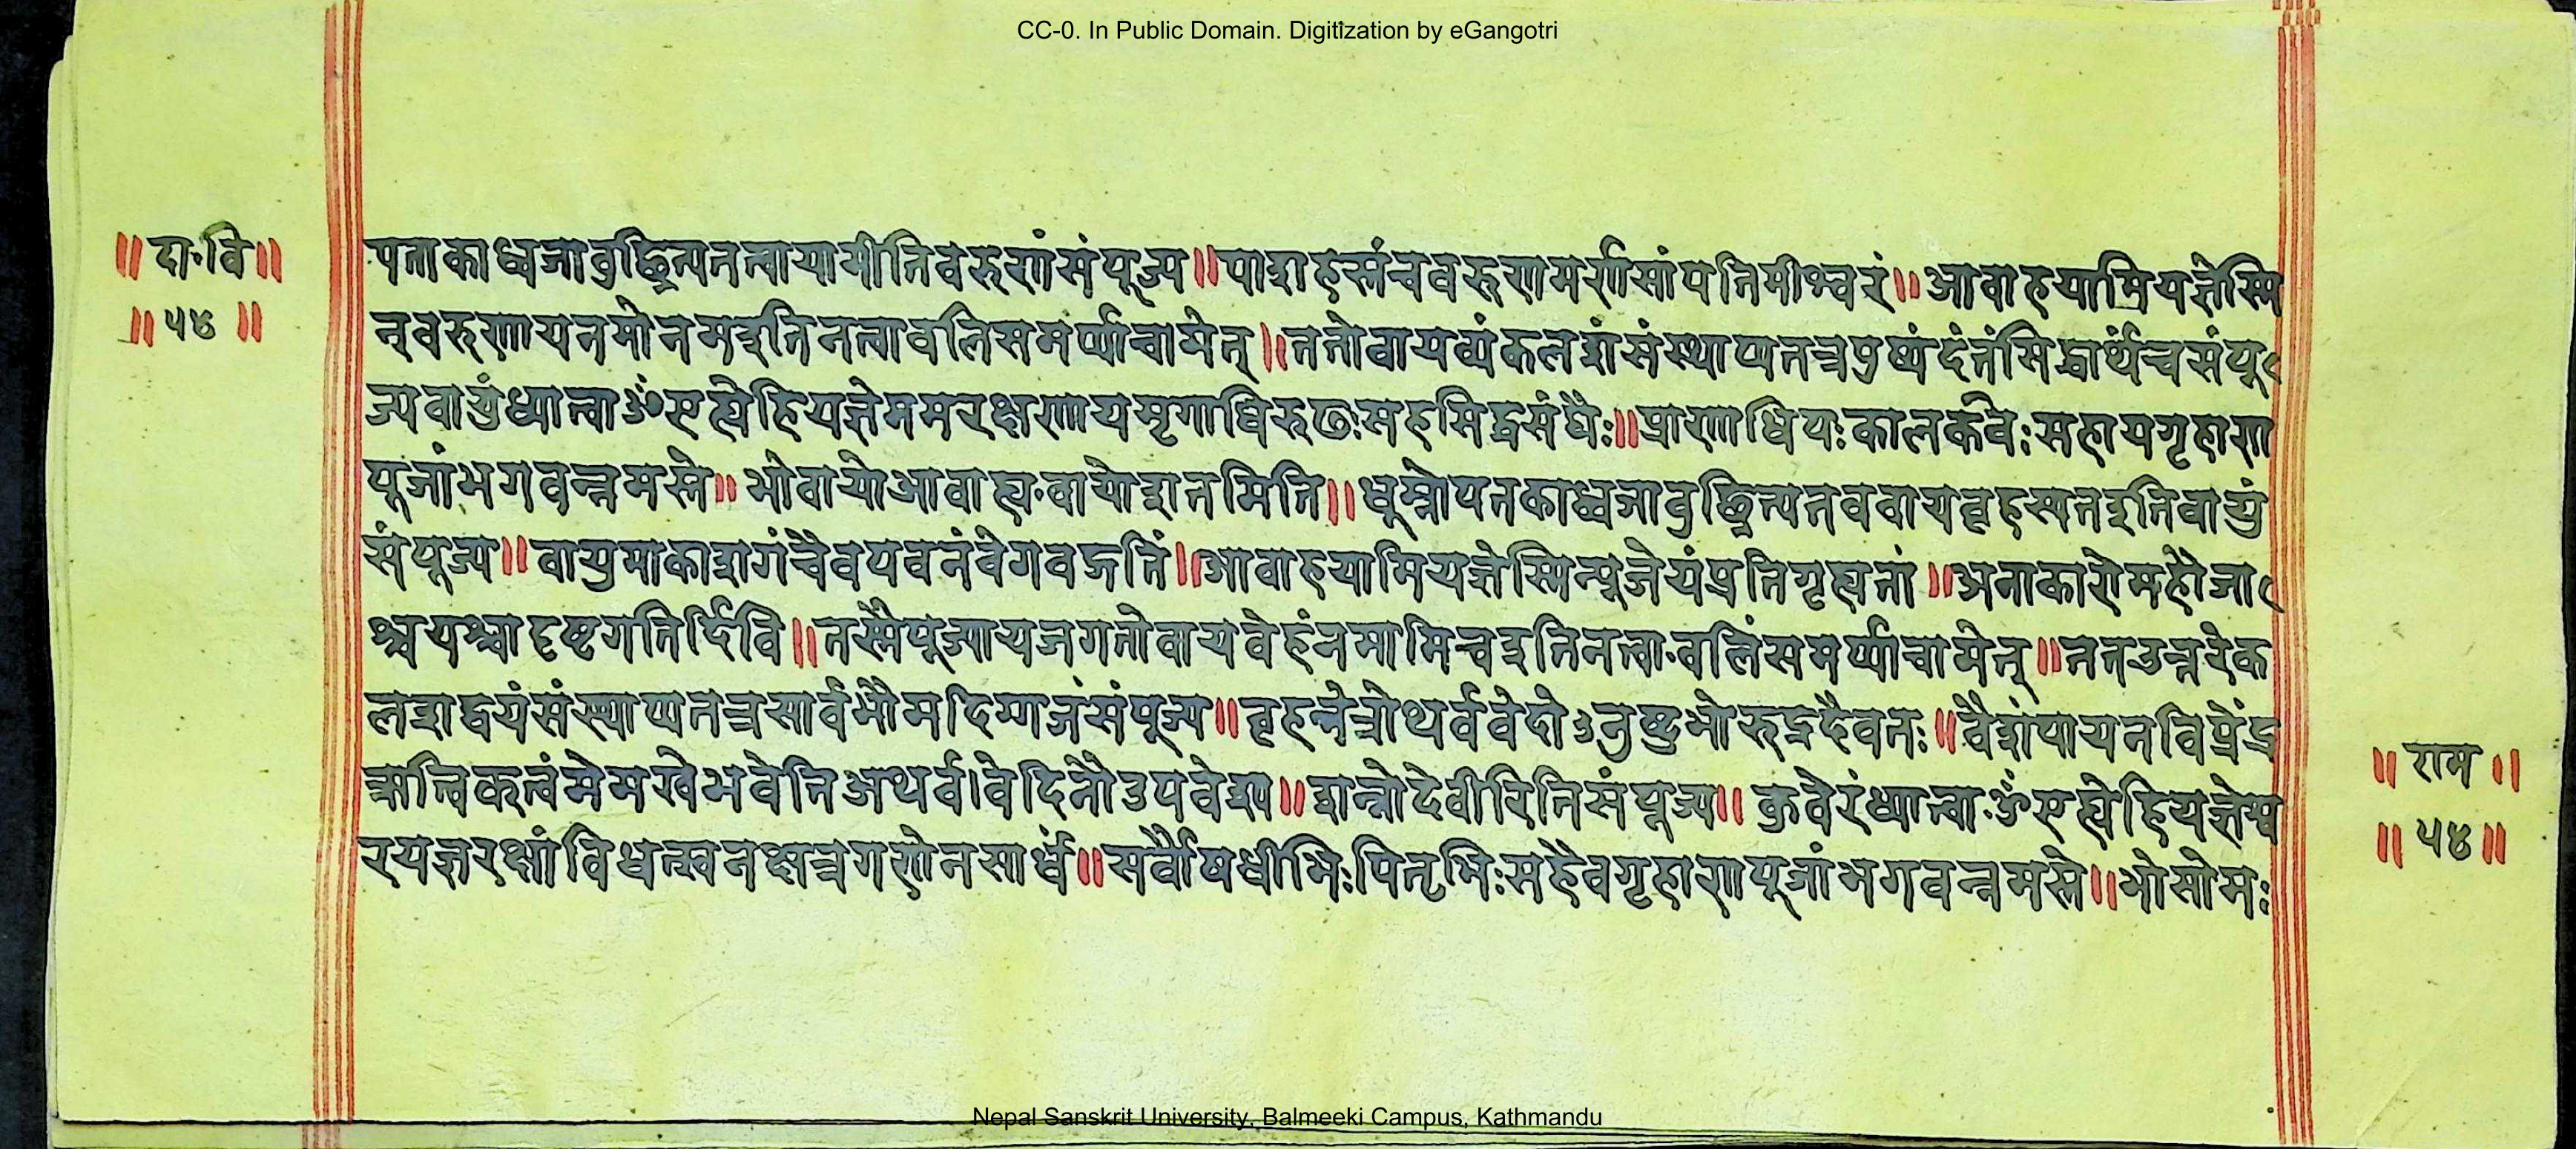 CC-0. In Public Domain. Digitization by eGangotri
॥ दा॰वि॥
॥ ५४ ॥
पताकाध्वजावुछ्रित्यतत्त्वायामीतिवरुणंसंपूज्य॥पाशहस्तंचवरूणमर्णसांपतिमीश्वरं॥आवाहयामियज्ञेस्मि
न्वरुणायनमोनमइतिनत्वावलिसमर्प्पाचामेत्॥ततोवायव्यंकलशंसंस्थाप्यतत्रपुष्पंदंतंसिद्धार्थंच्चसंपू
ज्यवायुंध्यात्वाॐएह्येहियज्ञेममरक्षणायमृगाधिरुढःसहसिद्धसंघैः॥प्राणाधिपःकालकवेःसहायगृहाण
पूजांभगवन्नमस्ते॥भोवायोआवाह्य॰वायोशतमिति॥धूम्रोपतकाध्वजावुछ्रित्यतववायवृहस्पतइतिवायुं
संपूज्य॥वायुमाकाशगंचैवपवनंवेगवद्गतिं॥आवाहयामियज्ञेस्मिन्पूजेयंप्रतिगृह्यतां॥अनाकारोमहौजा
श्चयश्चादृष्टगतिर्दिवि॥तस्मैपूज्यायजगतोवायवेहंनमामिच्चइतिनत्वा॰वलिंसमर्प्पाचामेत्॥ततउत्तरेक
लशद्वयंसंस्थाप्यतत्रसार्वभौमदिग्गजंसंपूज्य॥वृहन्नेत्रोथर्ववेदोऽनुष्टुभोरुद्रदैवतः॥वैशंपायनविप्रेंद्र
ऋत्विक्त्वंमेमखेभवेतिअथर्व।वेदिनौउपवेश्य॥शन्नोदेवीरितिसंपूज्य॥कुवेरंध्यात्वा॰ॐएह्येहियज्ञेश्व
रयज्ञरक्षांविधत्स्वनक्षत्रगणेनसार्धं॥सर्वौषधीभिःपितृभिःसहैवगृहाणपूजांभगवन्नमस्ते॥भोसोमः
॥ राम ॥
॥ ५४॥
Nepal Sanskrit University, Balmeeki Campus, Kathmandu